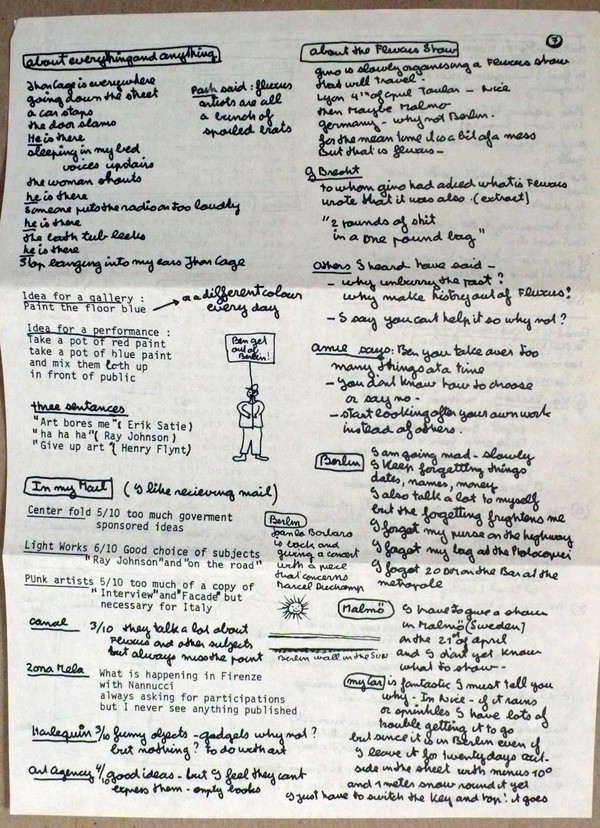 7
about everything and anything
Jhon Cage is everywhere
going down the street
a car stops
the door slams
He is there
sleeping in my bed
voices upstairs
the woman shouts
he is there
Someone puts the radio on too loudly
he is there
the bath tub leeks
he is there
Stop banging into my ears Jhon Cage
Paik said : fluxus
artists are all
a bunch of
spoiled brats
Idea for a gallery :
Paint the floor blue
or a different colour
every day
Idea for a performance :
Take a pot of red paint
take a pot of blue paint
and mix them both up
in front of public
Ben get
out of
Berlin!
three sentences
"Art bores me"( Erik Satie)
"ha ha ha"( Ray Johnson)
"Give up art"( Henry Flynt)
In my Mail ( I like recieving mail)
Center fold 5/10 too much goverment
sponsored ideas
Light Works 6/10 Good choice of subjects
"Ray Johnson"and"on the road"
PUnk artists 5/10 too much of a copy of
"Interview"and"Facade" but
necessary for Italy
Canal 3/10 they talk a lot about
Fluxus and other subjects
but always miss the point
Zona Mela What is happening in Firenze
with Nannucci
always asking for participations
but I never see anything published
Harlequin 3/10 funny objects - gadgets why not ?
but nothing ? to do with art
Art Agency 4/10 good ideas - but I feel they cant
express them - empty books
Berlin
is back and
giving a concert
with a piece
that concerns
Marcel Duchamp
Berlin wall in the SUN
about the Fluxus Show
gino is slowly organising a Fluxus show
that will travel -
Lyon 4th of april Toulon - Nice
then Maybe Malmo
germany - why not Berlin.
for the mean time it is a bit of a mess
But that is fluxus -
g Brecht
to whom gino had asked what is Fluxus
wrote that it was also . (extract)
"2 pounds of shit
in a one pound bag"
others I heard have said -
- why unburry the past ?
why make history out of Fluxus?
- I say you cant help it so why not ?
annie says: Ben you take over too
many things at a time
- you dont know how to choose
or say no -
- start looking after your own work
instead of others.
Berlin
I am going mad - slowly
I keep forgetting things
dates, names, money
I also talk a lot to myself
but the fogetting frightens me
I forgot my purse on the highway
I fogot my bag at the Photocopier
I fogot 20 DM on the Bar at the
metropole
Malmö
I have to give a show
in Malmö (Sweden)
on the 21st of april
and I don't yet know
what to show--
my car is fantastic I must tell you
why - In Nice - if it rains
or sprinkles I have lots of
trouble getting it to go
but since it is in Berlin even if
I leave it for twenty days out-
side in the street with minus 10°
and 1 meter snow round it yet
I just have to switch the key and hop! it goes